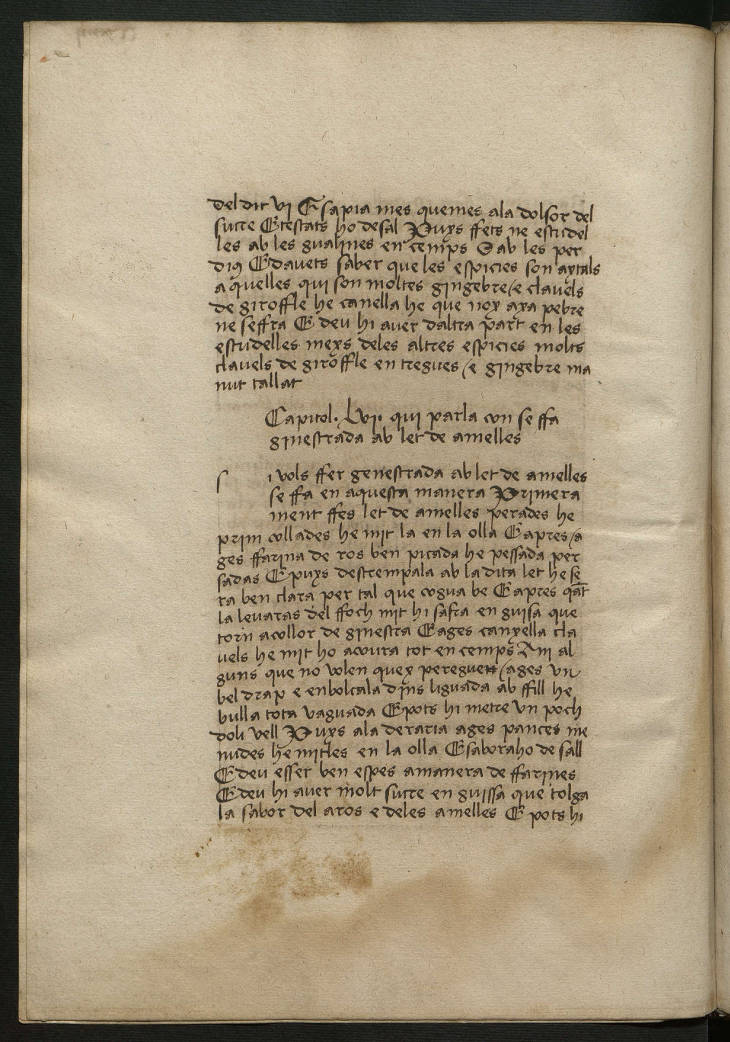 del dit vi E sapia mes que mes a la dolsor del
sucre E testats ho de sal Puxs ffets ne escudel
les ab les gualines en cemps O ab les per
dius E davets saber que les espicies son aytals
aquelles qui son moltes gingebre / e clavels
de giroffle he canella he que noy axa pebre
ne seffra E deu hi aver daltra part en les
escudelles meys deles altres espicies molts
clavels de giroffle entregues / e gingebre ma
nut tallat
Capitol · Lvi · qui parla con se ffa
ginestrada ab let de amelles
s i vols ffer genestrada ab let de amelles
se ffa en aquesta manera Primera
ment ffes let de amelles perades he
prim collades he mit la en la olla E apres / a
ges ffarina de ros ben picada he pessada per
sadas E puxs destrempala ab la dita let he se
ra ben clara per tal que cogua be E apres qāt
la levaras del ffoch mit hi safra en guisa que
torn a collor de ginestra E ages canyella cla
vels he mit ho a coura tot en cemps An al
guns que no volen quey / ages vn
bel drap e enbolcala dīns liguada ab ffill he
bulla tota vaguada E pots hi metre vn poch
doli vell Puxs ala deraria ages pances me
nudes he mitles en la olla E saboraho de sall
E deu esser ben espes a manera de ffarines
E deu hi aver molt sucre en guissa que tolga
la sabor del aros e deles amelles E pots hi